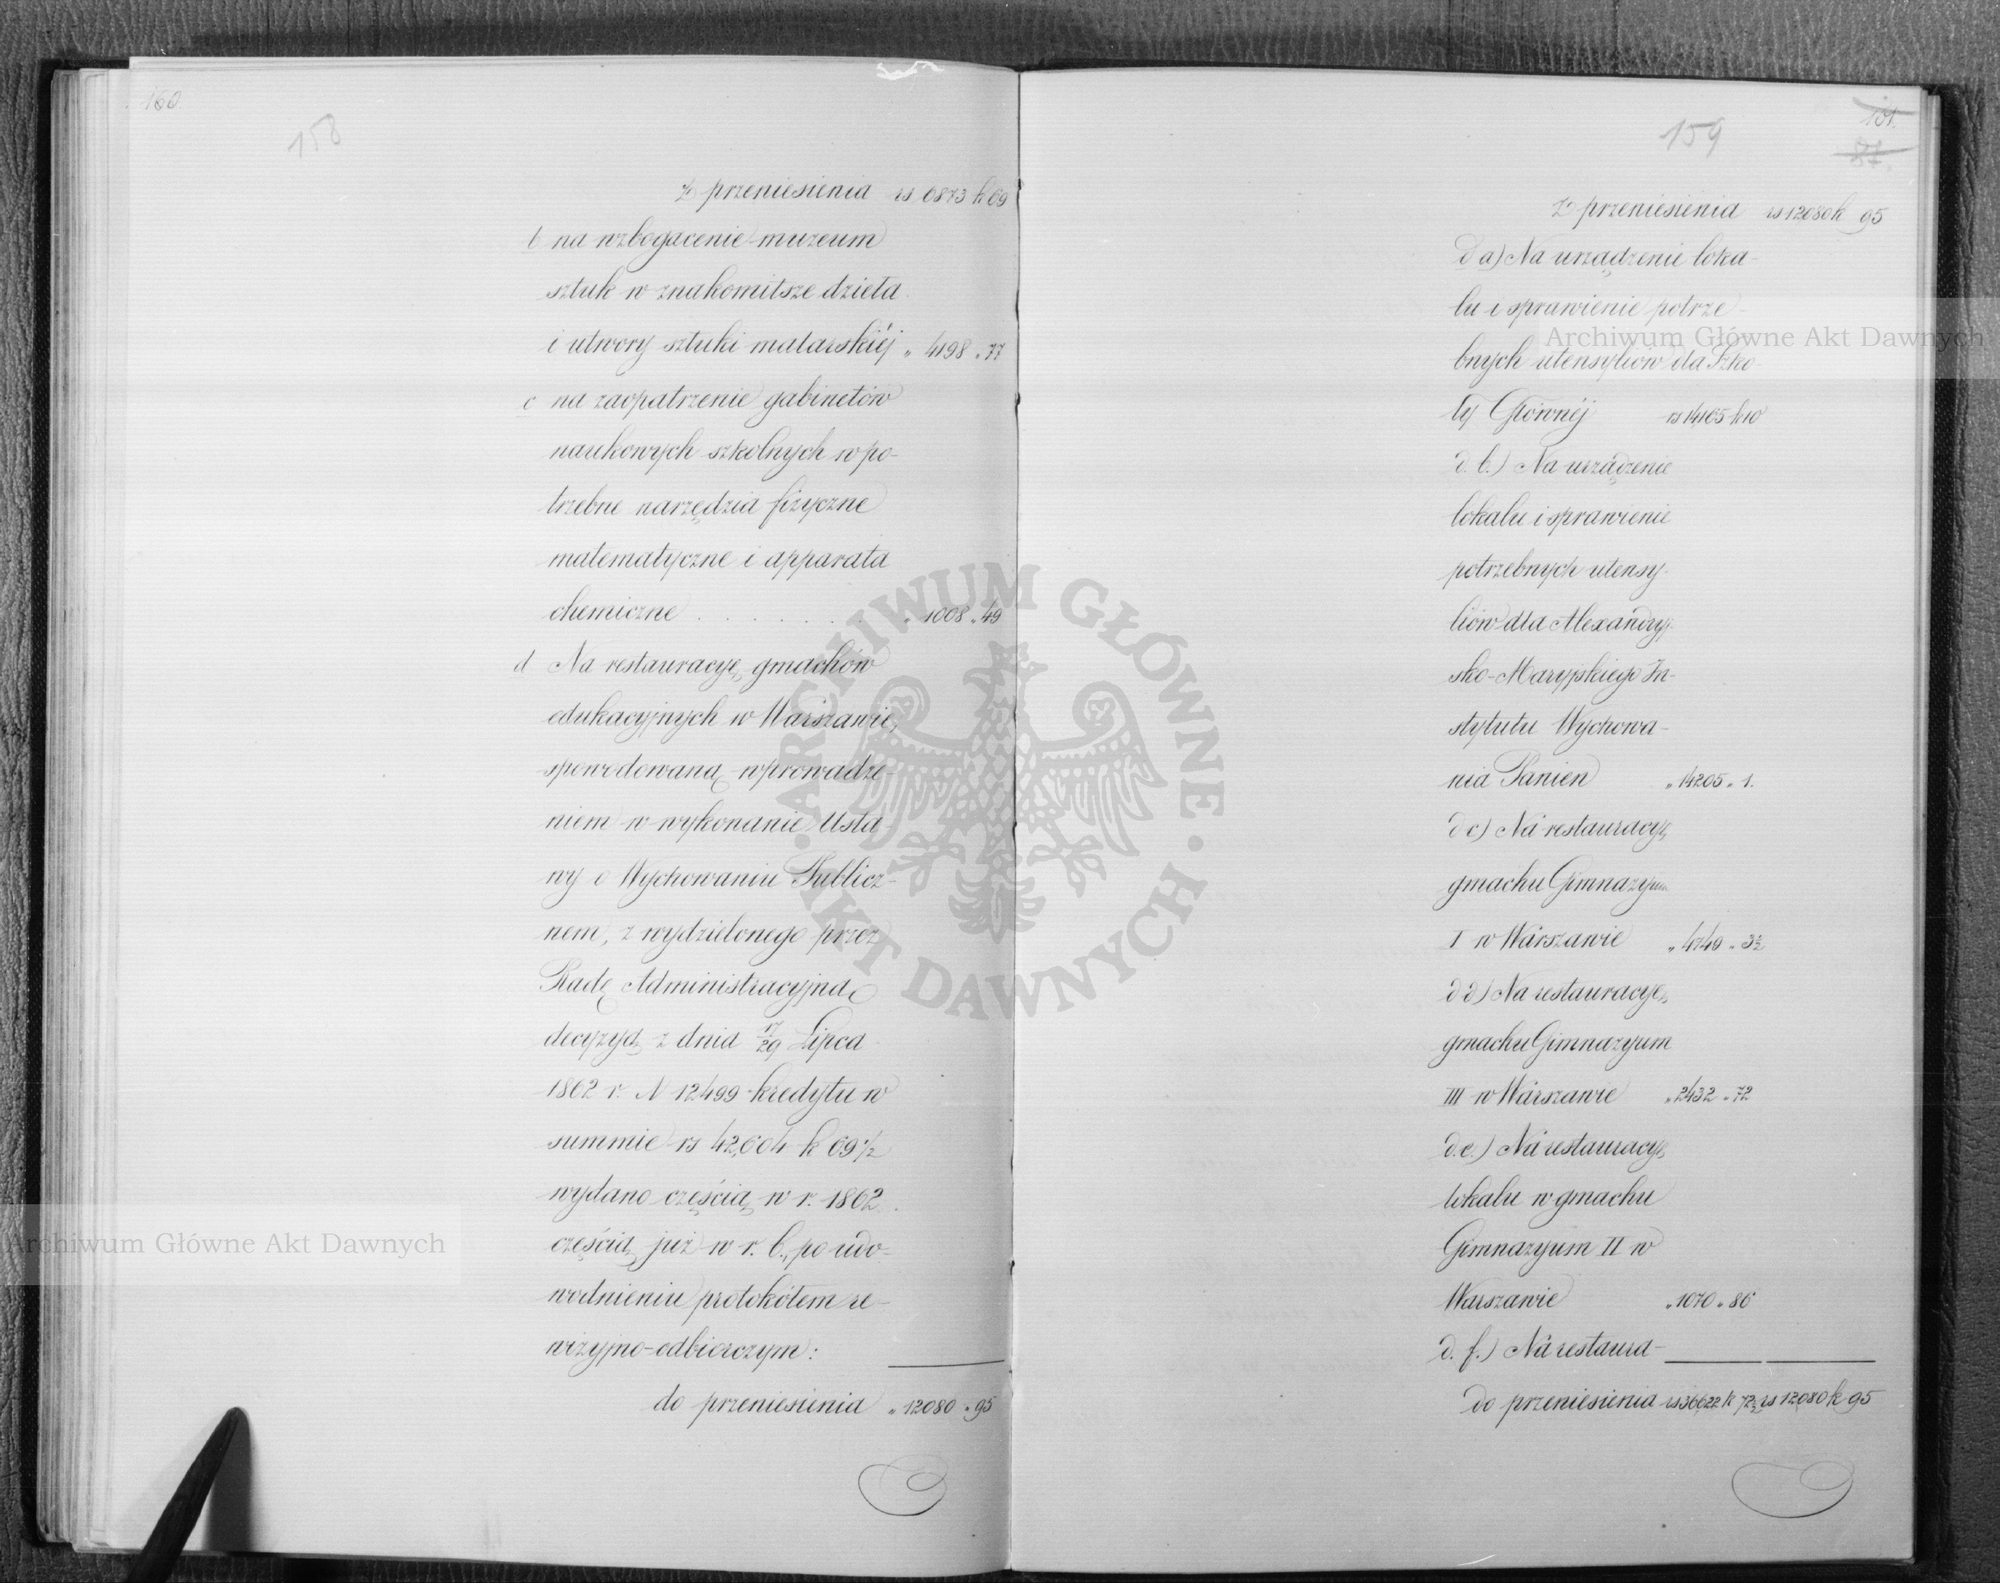 160
158
Z przeniesienia rs 6873 k 69
b na wzbogacenie muzeum
sztuk w znakomitsze dzieła
i utwory sztuki malarskiéj „ 4198 „ 77
c na zaopatrzenie gabinetów
naukowych szkolnych w po-
trzebne narzędzia fizyczne
matematyczne i apparata
chemiczne . . . . . . . „ 1008 „ 49
d Na restauracyę gmachów
edukacyjnych w Warszawie,
spowodowaną wprowadze-
niem w wykonanie Usta
wy o Wychowaniu Publicz-
nem, z wydzielonego przez
Radę Administracyjną
decyzyą z dnia 17/29 Lipca
1862 r. N 12499 kredytu w
summie rs 42,604 k 69 1/2
wydano częścią w r. 1862
częścią już w r. b., po udo-
wodnieniu protokółem re-
wizyjno-odbiorczym:
do przeniesienia „ 12080 „ 95
159
161.
81.
Z przeniesienia rs 12080 k 95
d a) Na urządzenie loka-
lu i sprawienie potrze-
bnych utensyliów dla Szko-
ły Głównéj rs 14,165 k 10
d. b.) Na urządzenie
lokalu i sprawienie
potrzebnych utensy-
liów dla Alexandryj-
sko-Maryjskiego In-
stytutu Wychowa-
nia Panien „ 14205 „ 1.
d c) Na restauracyę
gmachu Gimnazyum
I w Warszawie „ 4749 „ 3 1/2
d d) Na restauracyę
gmachu Gimnazyum
III w Warszawie „ 2432 „ 72
d. e.) Na restauracyę
lokalu w gmachu
Gimnazyum II w
Warszawie „ 1070 „ 86
d. f.) Na restaura-
do przeniesienia rs 36622 k 72 1/2 rs 12,080 k 95
Archiwum Główne Akt Dawnych
Archiwum Główne Akt Dawnych
ARCHIWUM GŁÓWNE
AKT DAWNYCH